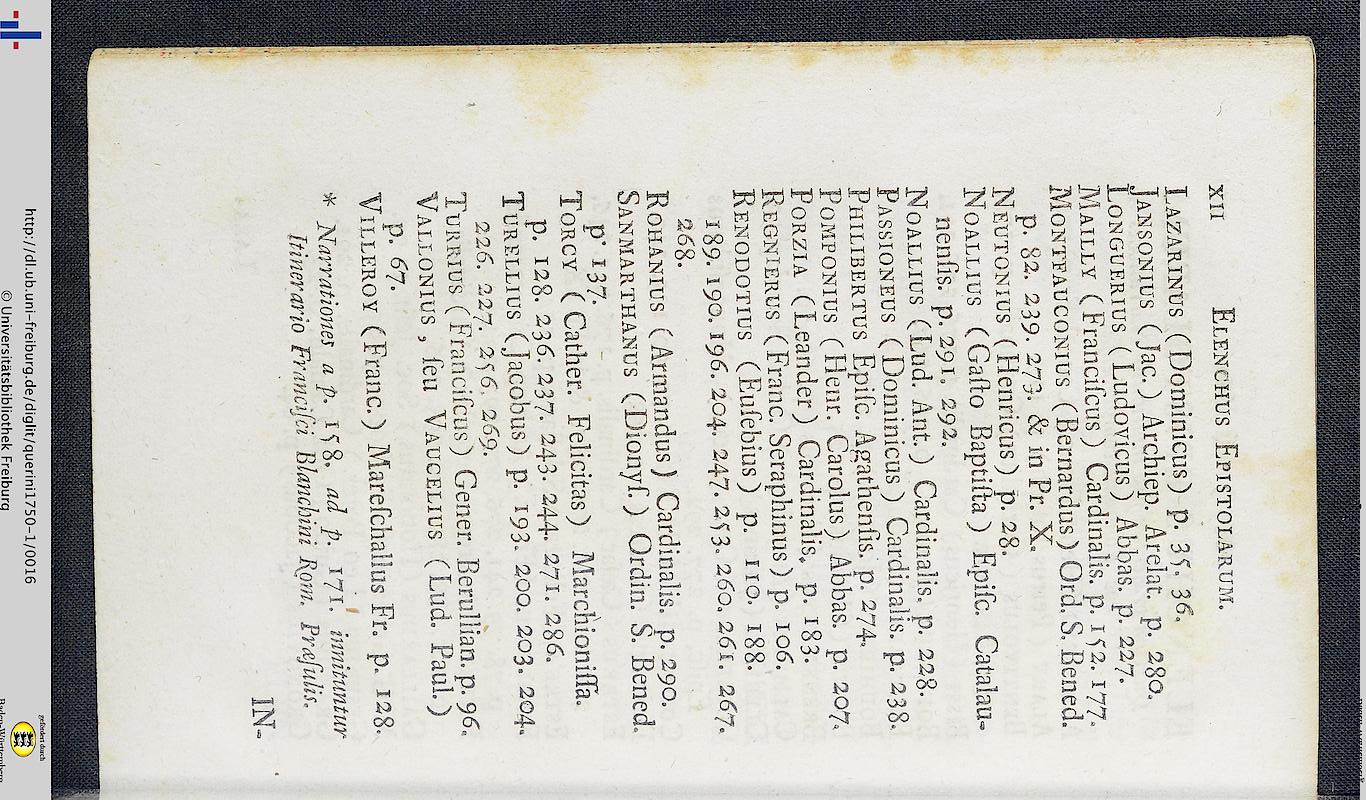 XII
ELENCHUS EPISTOLARUM.
LAZARINUS (Dominicus) p. 35. 36.
JANSONIUS (Jac.) Archiep. Arelat. p. 280.
LONGUERIUS (Ludovicus) Abbas. p. 227.
MAILLY (Franciſcus) Cardinalis. p. 152. 177.
MONTFAUCONIUS (Bernardus) Ord. S. Bened.
p. 82. 239. 273. & in Pr. X.
NEUTONIUS (Henricus) p. 28.
NOALLIUS (Gaſto Baptiſta) Epiſc. Catalau-
nenſis. p. 291. 292.
NOALLIUS (Lud. Ant.) Cardinalis. p. 228.
PASSIONEUS (Dominicus) Cardinalis. p. 238.
PHILIBERTUS Epiſc. Agathenſis. p. 274.
POMPONIUS (Henr. Carolus) Abbas. p. 207.
PORZIA (Leander) Cardinalis. p. 183.
REGNIERUS (Franc. Seraphinus) p. 106.
RENODOTIUS (Euſebius) p. 110. 188.
189. 190. 196. 204. 247. 253. 260. 261. 267.
268.
ROHANIUS (Armandus) Cardinalis. p. 290.
SANMARTHANUS (Dionyſ.) Ordin. S. Bened.
p. 137.
TORCY (Cather. Felicitas) Marchioniſſa.
p. 128. 236. 237. 243. 244. 271. 286.
TURELLIUS (Jacobus) p. 193. 200. 203. 204.
226. 227. 256. 269.
TURRIUS (Franciſcus) Gener. Berullian. p. 96.
VALLONIUS, ſeu VAUCELIUS (Lud. Paul.)
p. 67.
VILLEROY (Franc.) Mareſchallus Fr. p. 128.
* Narrationes a p. 158. ad p. 171. innituntur
Itinerario Franciſci Blanchini Rom. Præſulis.
IN-
http://dl.ub.uni-freiburg.de/diglit/querini1750-1/0016
© Universitätsbibliothek Freiburg
gefördert durch
Baden-Württemberg